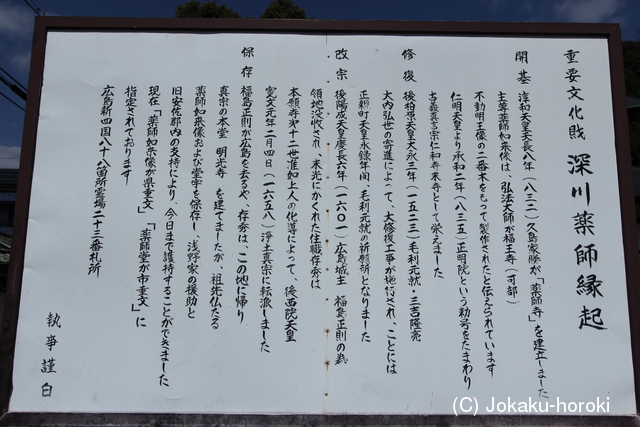 重要文化財 深川薬師縁起
開基 淳和天皇天長八年(八三二)久島家勝が「薬師寺」を建立しました
主尊薬師如来像は、弘法大師が福王寺(可部)
不動明王像の二番木をもって製作されたと伝えられています
仁明天皇より承和二年(八三五)正明院という勅号をたまわり
古義真言宗仁和寺末寺として栄えました
修復 後柏原天皇大永三年(一五二三)毛利元就・三吉隆亮
大内弘世の寄進によって、大修復工事が施行され、ことには
正親町天皇永録年間、毛利元就の祈願所となりました
改宗 後陽成天皇慶長六年(一六〇一)広島城主 福島正則の為
領地没収され、末光にかくれた住職存秀は
本願寺第十二世准如上人の化導によって、後西院天皇
寛文元年二月四日(一六五八)浄土真宗に転派しました
保存 福島正則が広島を去るや、存秀は、この地に帰り
真宗の本堂 明光寺 を建てましたが、祖先仏たる
薬師如来像および堂宇を保存し、浅野家の援助と
旧安佐郡内の支持により、今日まで護持することができました
現在「薬師如来像が県重文」「薬師堂が市重文」に
指定されております
広島新四国八十八箇所霊場二十三番札所
執事謹白
(C) Jokaku-horoki